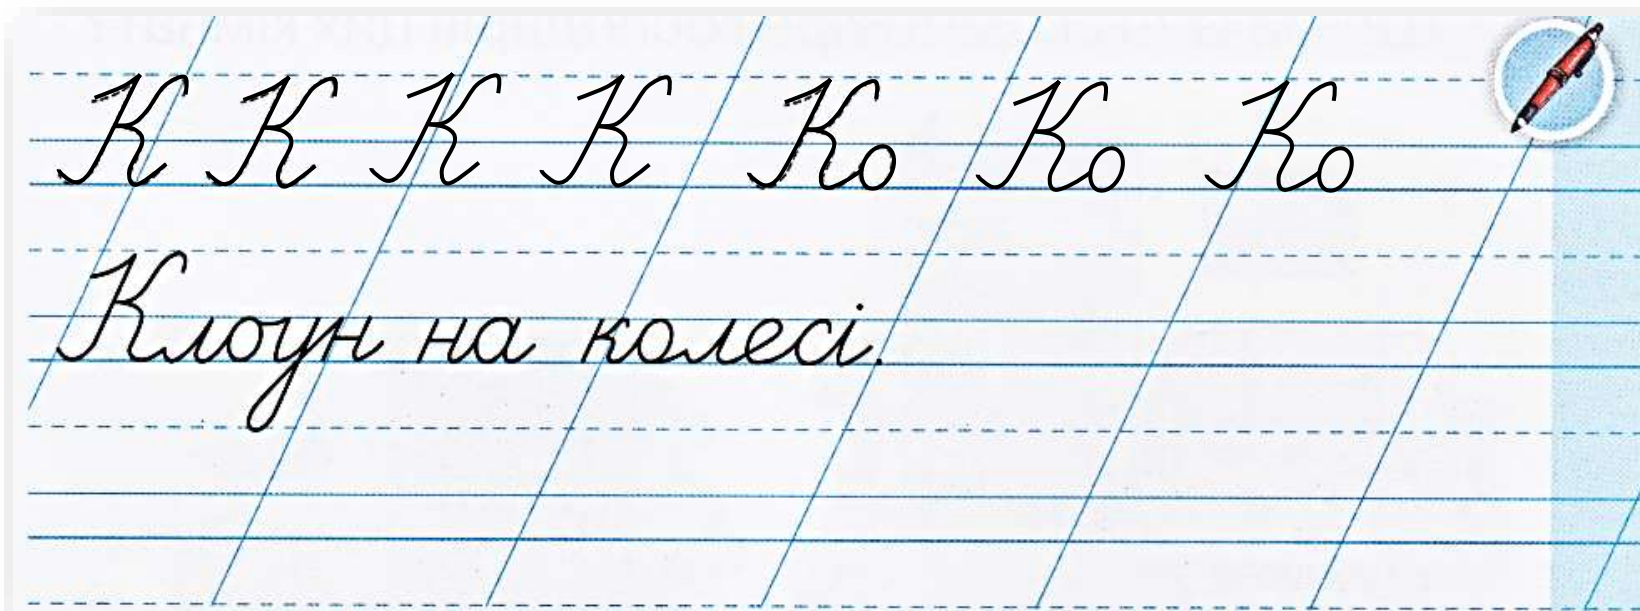 К К К К Ко Ко Ко
Клоун на колесі.